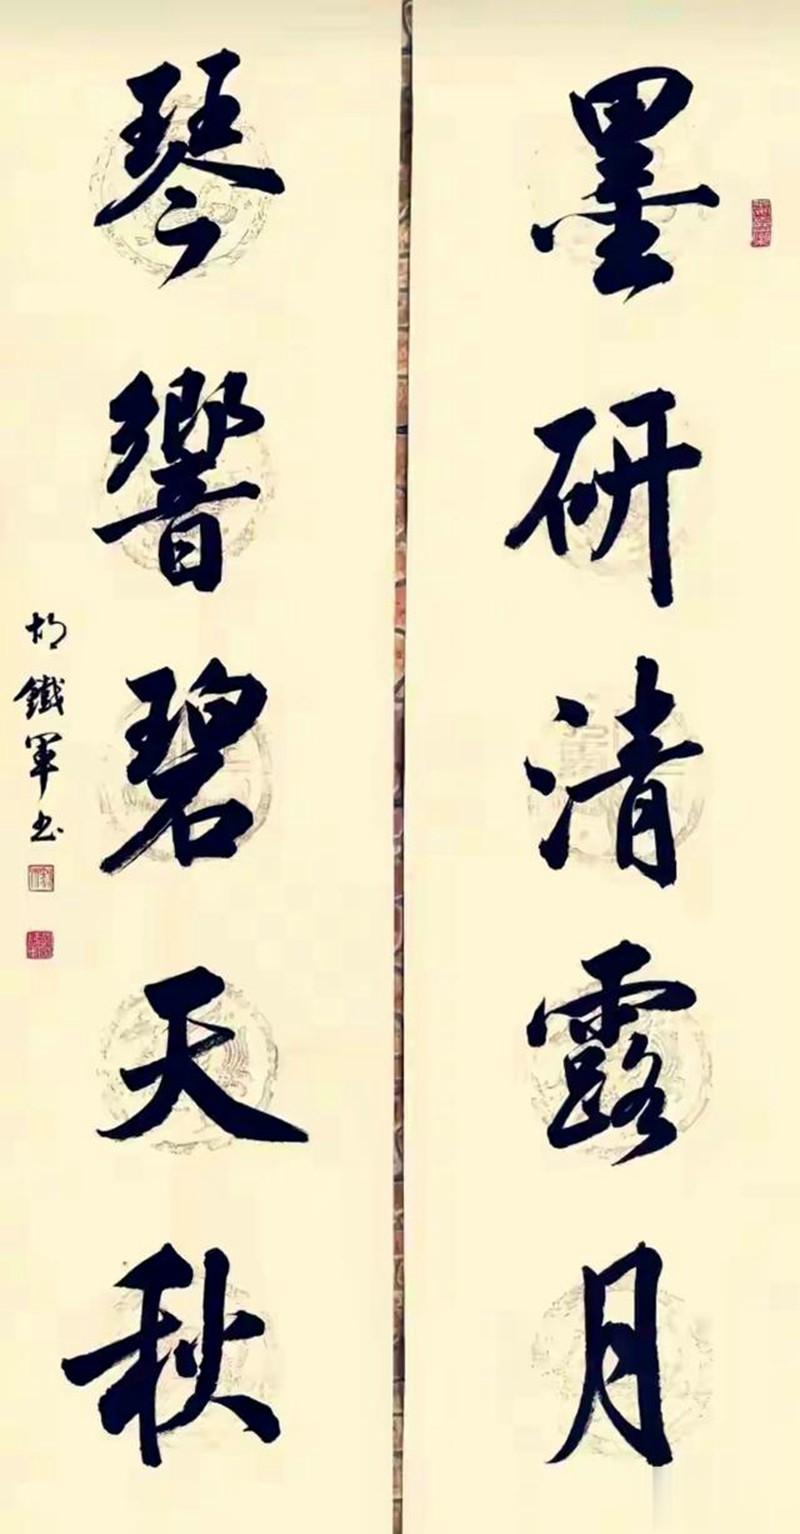 墨研清露月
琴響碧天秋
胡鐵軍书